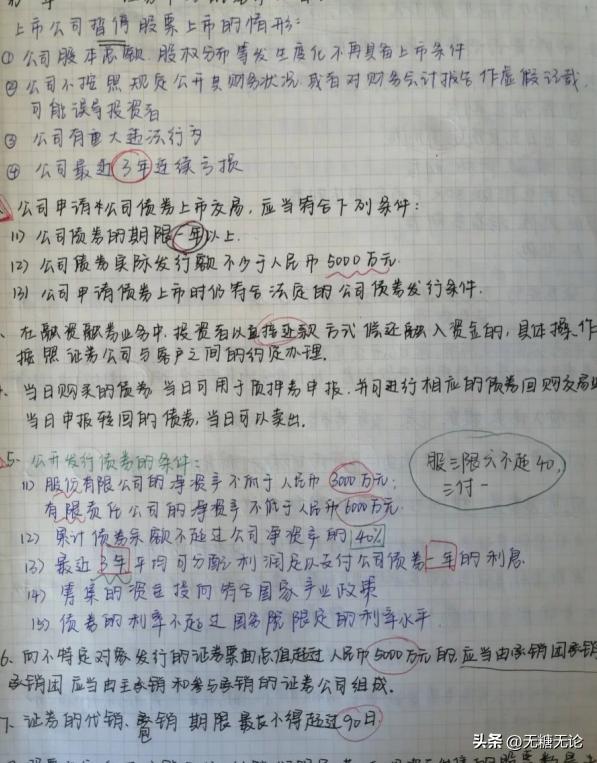 上市公司暂停股票上市的情形:
① 公司股本总额、股权分布等发生变化不再具有上市条件
② 公司不按照规定公开其财务状况,或者对财务会计报告作虚假记载,
可能误导投资者
③ 公司有重大违法行为
④ 公司最近3年连续亏损
公司申请本公司债券上市交易,应当符合下列条件:
(1) 公司债券的期限一年以上.
(2) 公司债券实际发行额不少于人民币5000万元.
(3) 公司申请债券上市时仍符合法定的公司债券发行条件.
、在融资融券业务中,投资者以直接还款方式偿还融入资金的,具体操作
按照证券公司与客户之间的约定办理.
、当日购买的债券,当日可用于质押券申报,并可进行相应的债券回购交易业
当日申报转回的债券,当日可以卖出.
5、公开发行债券的条件:
(1) 股份有限公司的净资产不低于人民币3000万元;
有限责任公司的净资产不低于人民币6000万元.
股三限六不超40,
三付一
(2) 累计债券余额不超过公司净资产的40%
(3) 最近3年平均可分配利润足以支付公司债券一年的利息
(4) 筹集的资金投向符合国家产业政策
(5) 债券的利率不超过国务院限定的利率水平.
6、向不特定对象发行的证券票面总值超过人民币5000万元的,应当由承销团承销
承销团应当由主承销和参与承销的证券公司组成.
7、证券的代销、包销期限最长不得超过90日.
头条 @无糖无论